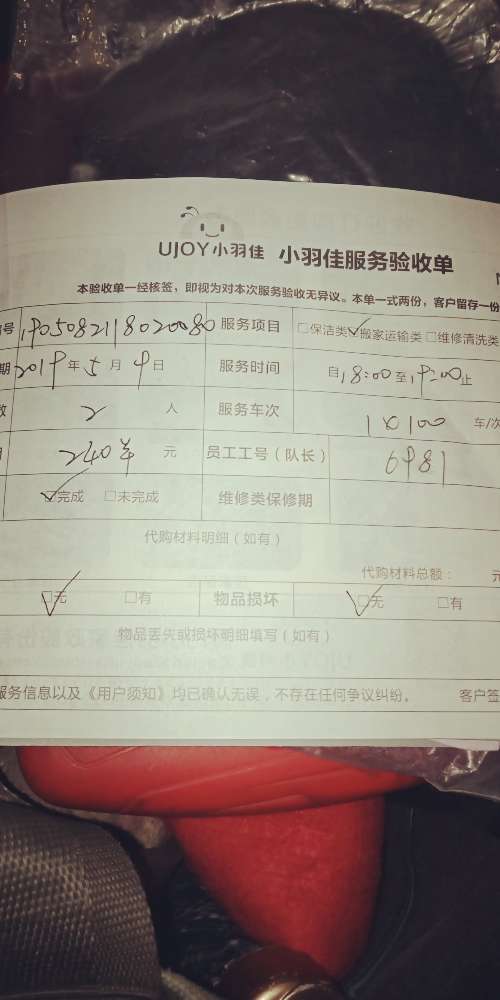 UJOY小羽佳 小羽佳服务验收单
本验收单一经核签，即视为对本次服务验收无异议。本单一式两份，客户留存一份
号 1905082118020080 服务项目 □保洁类☑搬家运输类□维修清洗类
期 2019年5月9日 服务时间 自18:00至19:00止
数 2人 服务车次 1×100 车/次
240 元 员工工号（队长） 6981
☑完成 □未完成 维修类保修期
代购材料明细（如有）
代购材料总额： 元
☑无 □有 物品损坏 ☑无 □有
物品丢失或损坏明细填写（如有）
服务信息以及《用户须知》均已确认无误，不存在任何争议纠纷。 客户签